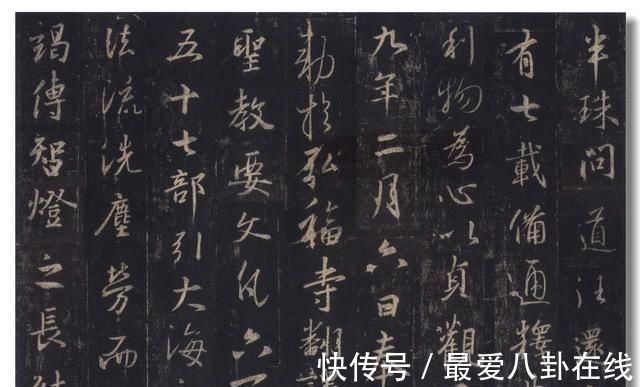 半珠問道往還
有七載備通釋
利物為心以貞觀
九年二月六日奉
勅於弘福寺翻
聖教要文凡六
五十七部引大海
法流洗塵勞而
竭傳智燈之長
快传号 / 最爱八卦在线